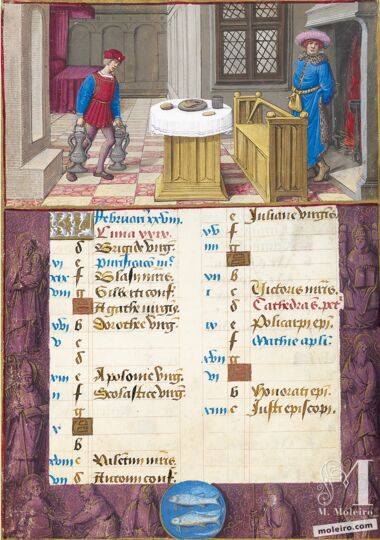 KL februarius xxviii.
Luna xxix.
d Brigide virg.
xi e Purificacio
xix f Blasii mris.
viii g Gilberti conf.
A Agathe virgis.
xvi b Dorothee virg.
v c
d
xiii e Apolonie virg.
ii f Scolastice virg.
g
x A
b
xviii c Valetini mris.
vii d
e Juliane virgis.
xv f
iiii g
A
xii b
i c Victoris mris.
d Cathedra s. pet.
ix e Policarpi epi.
f Mathie apli.
xvii g
vi A
b Honorati epi.
xiiii c Justi episcopi.
M
M. Moleiro
moleiro.com